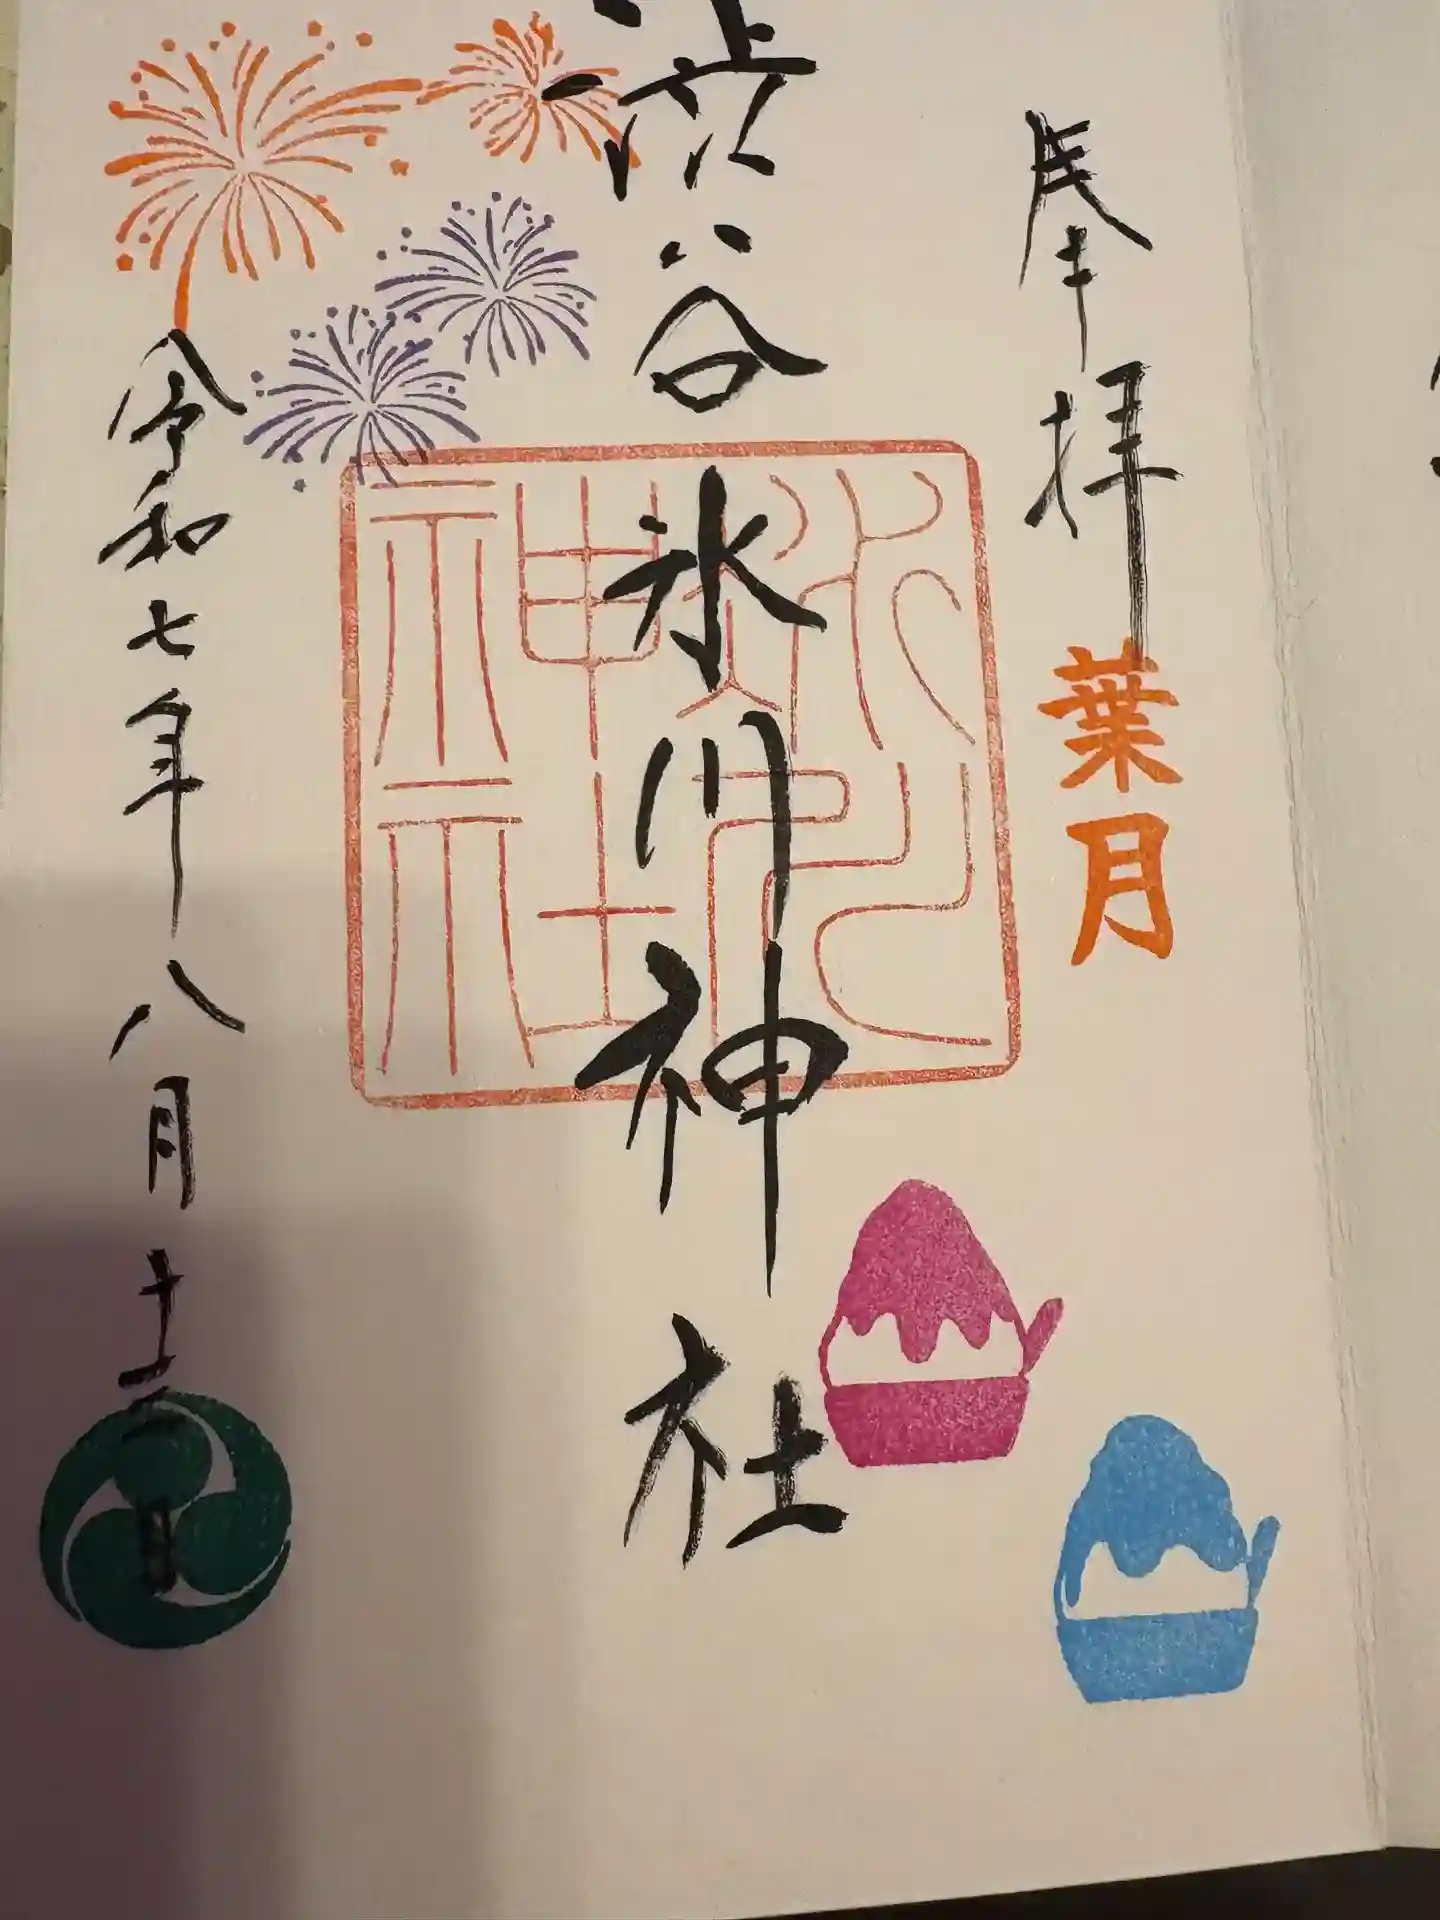 奉拝
葉月
渋谷氷川神社
氷川神社
令和七年八月十三日